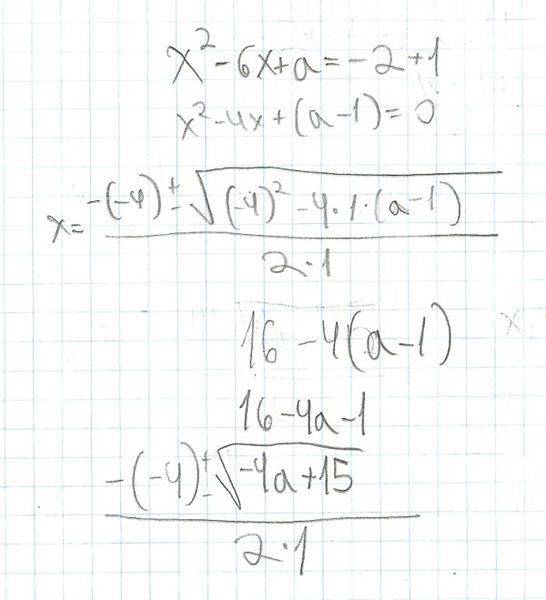 x² - 6x + a = -2 + 1
x² - 4x + (a - 1) = 0
x = (-(-4) ± √((-4)² - 4·1·(a - 1))) / (2·1)
16 - 4(a - 1)
16 - 4a - 1
(-(-4) ± √(-4a + 15)) / (2·1)